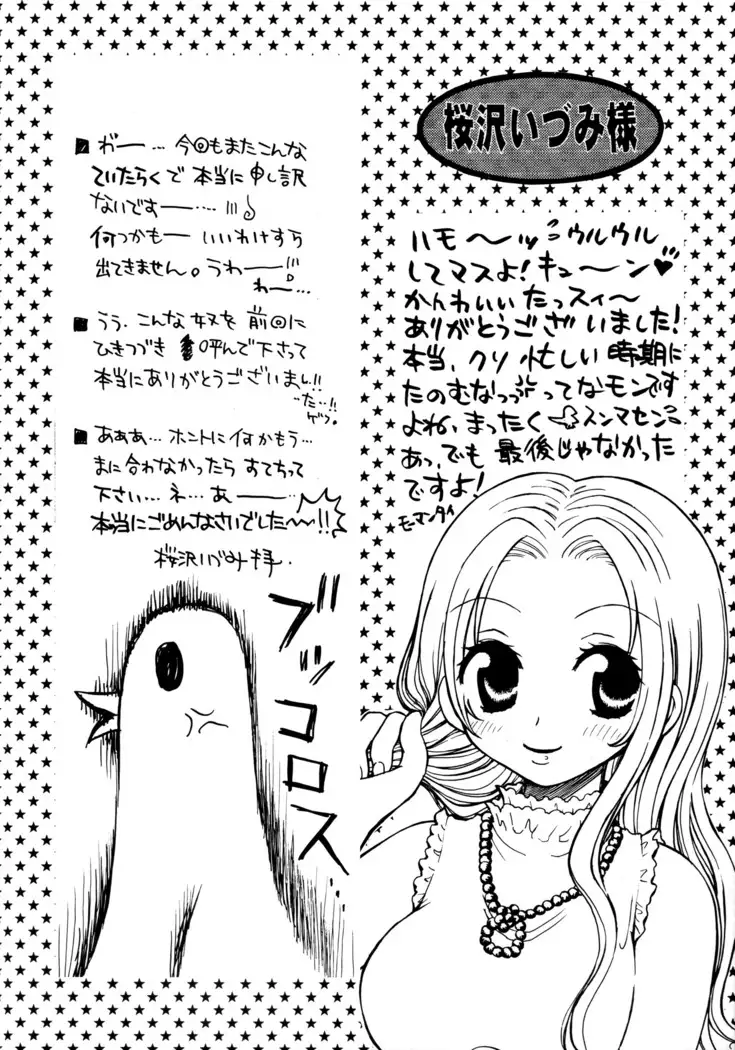 桜沢いづみ様
ハモ〜〜ッ ウルウル
してマスよ!キュ〜〜ン♥
かんわいい たっスィ〜
ありがとうございました!
本当、クソ忙しい時期に
たのむなっつうってなモンです
よね、まったく スンマセン
あっ、でも 最後じゃなかった
ですよ!
モーマンタイ
■ がー… 今回もまたこんな
ていたらくで 本当に申し訳
ないですー…
何つかもー いいわけすら
出てきません。うわー
わー…
■ うぅ、こんな奴を 前回に
ひきつづき 呼んで下さって
本当にありがとうございまし!!
た…!!
ゲフ。
■ あぁあ… ホントに何かもう…
まに合わなかったら すてちって
下さい… ネ… あー
本当にごめんなさいでした〜!!
桜沢いづみ拝.
ブッコロス…